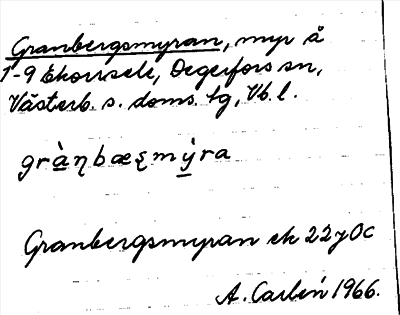 Granbergsmyran, myr å
1-9 Ekorrsele, Degerfors sn,
Västerb. s. doms. tg, Vb. l.
grànbæȿmýra
Granbergsmyran ek 22y0c
A. Carlén 1966.